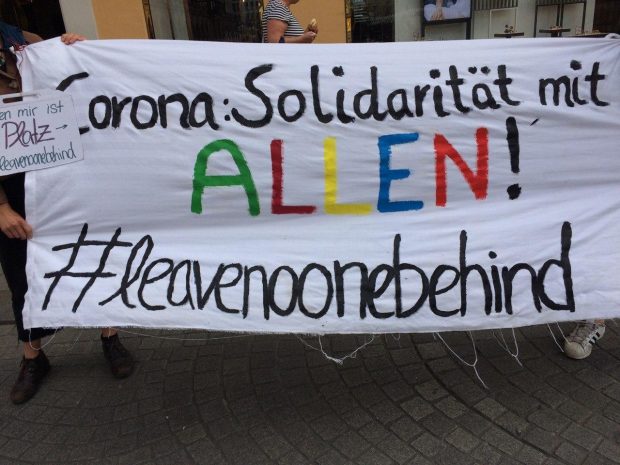 Corona: Solidarität mit
ALLEN!
#leavenoonebehind
en mir ist
Platz →
leavenoonebehind